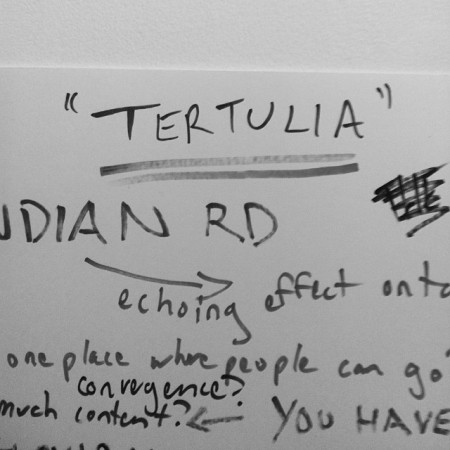 "TERTULIA"
NDIAN RD
echoing effect onto
one place where people can go?
convergence?
much content? ← YOU HAVE